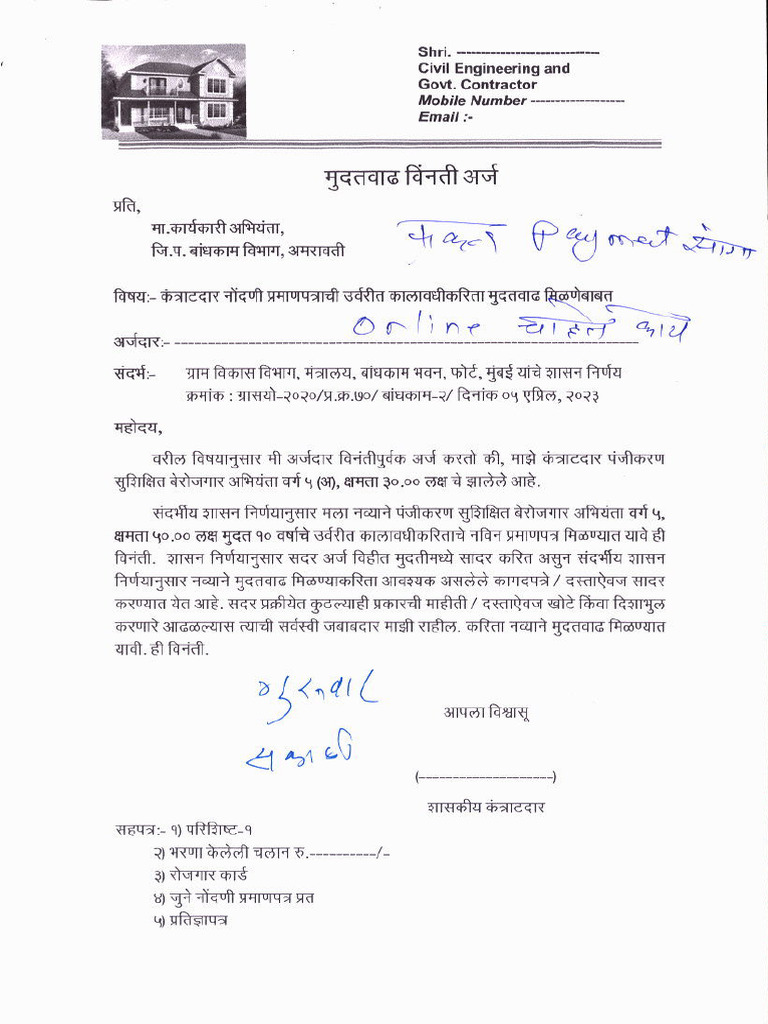 Shri. ------------------------------
Civil Engineering and
Govt. Contractor
Mobile Number -------------------
Email :-
मुदतवाढ विंनती अर्ज
प्रति,
मा.कार्यकारी अभियंता,
जि.प. बांधकाम विभाग, अमरावती
Payment
विषय:- कंत्राटदार नोंदणी प्रमाणपत्राची उर्वरीत कालावधीकरिता मुदतवाढ मिळणेबाबत
Online
अर्जदार:- ----------------------------------------------------------------------
संदर्भ:- ग्राम विकास विभाग, मंत्रालय, बांधकाम भवन, फोर्ट, मुंबई यांचे शासन निर्णय
क्रमांक : ग्रासयो-२०२०/प्र.क्र.७०/ बांधकाम-२/ दिनांक ०५ एप्रिल, २०२३
महोदय,
वरील विषयानुसार मी अर्जदार विनंतीपुर्वक अर्ज करतो की, माझे कंत्राटदार पंजीकरण
सुशिक्षित बेरोजगार अभियंता वर्ग ५ (अ), क्षमता ३०.०० लक्ष चे झालेले आहे.
संदर्भीय शासन निर्णयानुसार मला नव्याने पंजीकरण सुशिक्षित बेरोजगार अभियंता वर्ग ५,
क्षमता ५०.०० लक्ष मुदत १० वर्षाचे उर्वरीत कालावधीकरिताचे नविन प्रमाणपत्र मिळण्यात यावे ही
विनंती. शासन निर्णयानुसार सदर अर्ज विहीत मुदतीमध्ये सादर करित असुन संदर्भीय शासन
निर्णयानुसार नव्याने मुदतवाढ मिळण्याकरिता आवश्यक असलेले कागदपत्रे / दस्ताऐवज सादर
करण्यात येत आहे. सदर प्रक्रीयेत कुठल्याही प्रकारची माहीती / दस्ताऐवज खोटे किंवा दिशाभुल
करणारे आढळल्यास त्याची सर्वस्वी जबाबदार माझी राहील. करिता नव्याने मुदतवाढ मिळण्यात
यावी. ही विनंती.
आपला विश्वासू
(--------------------)
शासकीय कंत्राटदार
सहपत्र:- १) परिशिष्ट-१
२) भरणा केलेली चलान रु.----------/-
३) रोजगार कार्ड
४) जुने नोंदणी प्रमाणपत्र प्रत
५) प्रतिज्ञापत्र